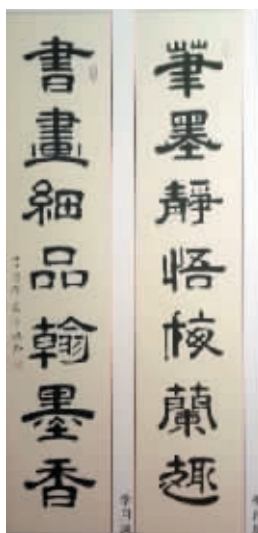 筆墨靜悟梅蘭趣
書畫細品翰墨香